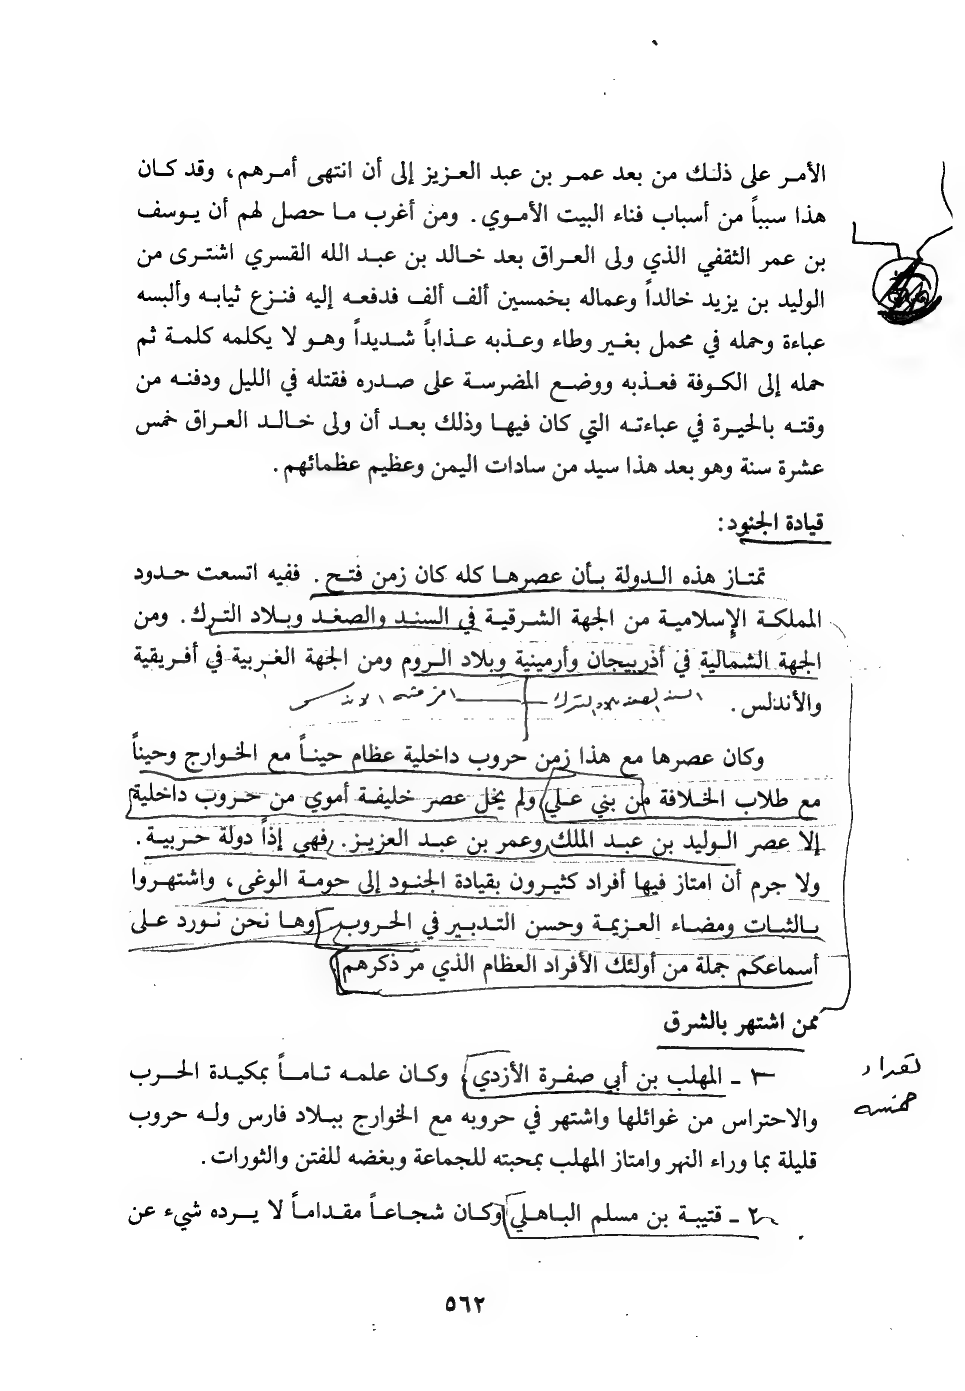 الأمر على ذلك من بعد عمر بن عبد العزيز إلى أن انتهى أمرهم، وقد كان
هذا سبباً من أسباب فناء البيت الأموي. ومن أغرب ما حصل لهم أن يوسف
بن عمر الثقفي الذي ولى العراق بعد خالد بن عبد الله القسري اشترى من
الوليد بن يزيد خالداً وعماله بخمسين ألف ألف فدفعه إليه فنزع ثيابه وألبسه
عباءة وحمله في محمل بغير وطاء وعذبه عذاباً شديداً وهو لا يكلمه كلمة ثم
حمله إلى الكوفة فعذبه ووضع المضرسة على صدره فقتله في الليل ودفنه من
وقته بالحيرة في عباءته التي كان فيها وذلك بعد أن ولى خالد العراق خمس
عشرة سنة وهو بعد هذا سيد من سادات اليمن وعظيم عظمائهم.
قيادة الجنود:
تمتاز هذه الدولة بأن عصرها كله كان زمن فتح. ففيه اتسعت حدود
المملكة الإسلامية من الجهة الشرقية في السند والصغد وبلاد الترك. ومن
الجهة الشمالية في أذربيجان وأرمينية وبلاد الروم ومن الجهة الغربية في أفريقية
والأندلس.
وكان عصرها مع هذا زمن حروب داخلية عظام حيناً مع الخوارج وحيناً
مع طلاب الخلافة من بني علي ولم يخل عصر خليفة أموي من حروب داخلية
إلا عصر الوليد بن عبد الملك وعمر بن عبد العزيز. فهي إذاً دولة حربية.
ولا جرم أن امتاز فيها أفراد كثيرون بقيادة الجنود إلى حومة الوغى، واشتهروا
بالثبات ومضاء العزيمة وحسن التدبير في الحروب وها نحن نورد على
أسماعكم جملة من أولئك الأفراد العظام الذي مر ذكرهم
ممن اشتهر بالشرق
١ - المهلب بن أبي صفرة الأزدي، وكان علمه تاماً بمكيدة الحرب
والاحتراس من غوائلها واشتهر في حروبه مع الخوارج ببلاد فارس وله حروب
قليلة بما وراء النهر وامتاز المهلب بمحبته للجماعة وبغضه للفتن والثورات.
٢ - قتيبة بن مسلم الباهلي وكان شجاعاً مقداماً لا يرده شيء عن
٥٦٢